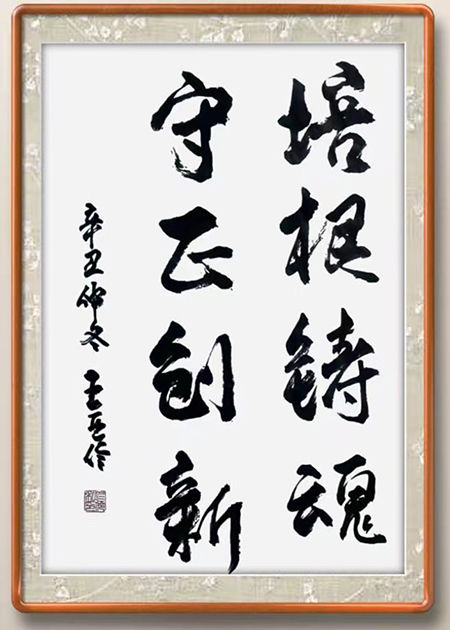 培根铸魂
守正创新
辛丑仲冬